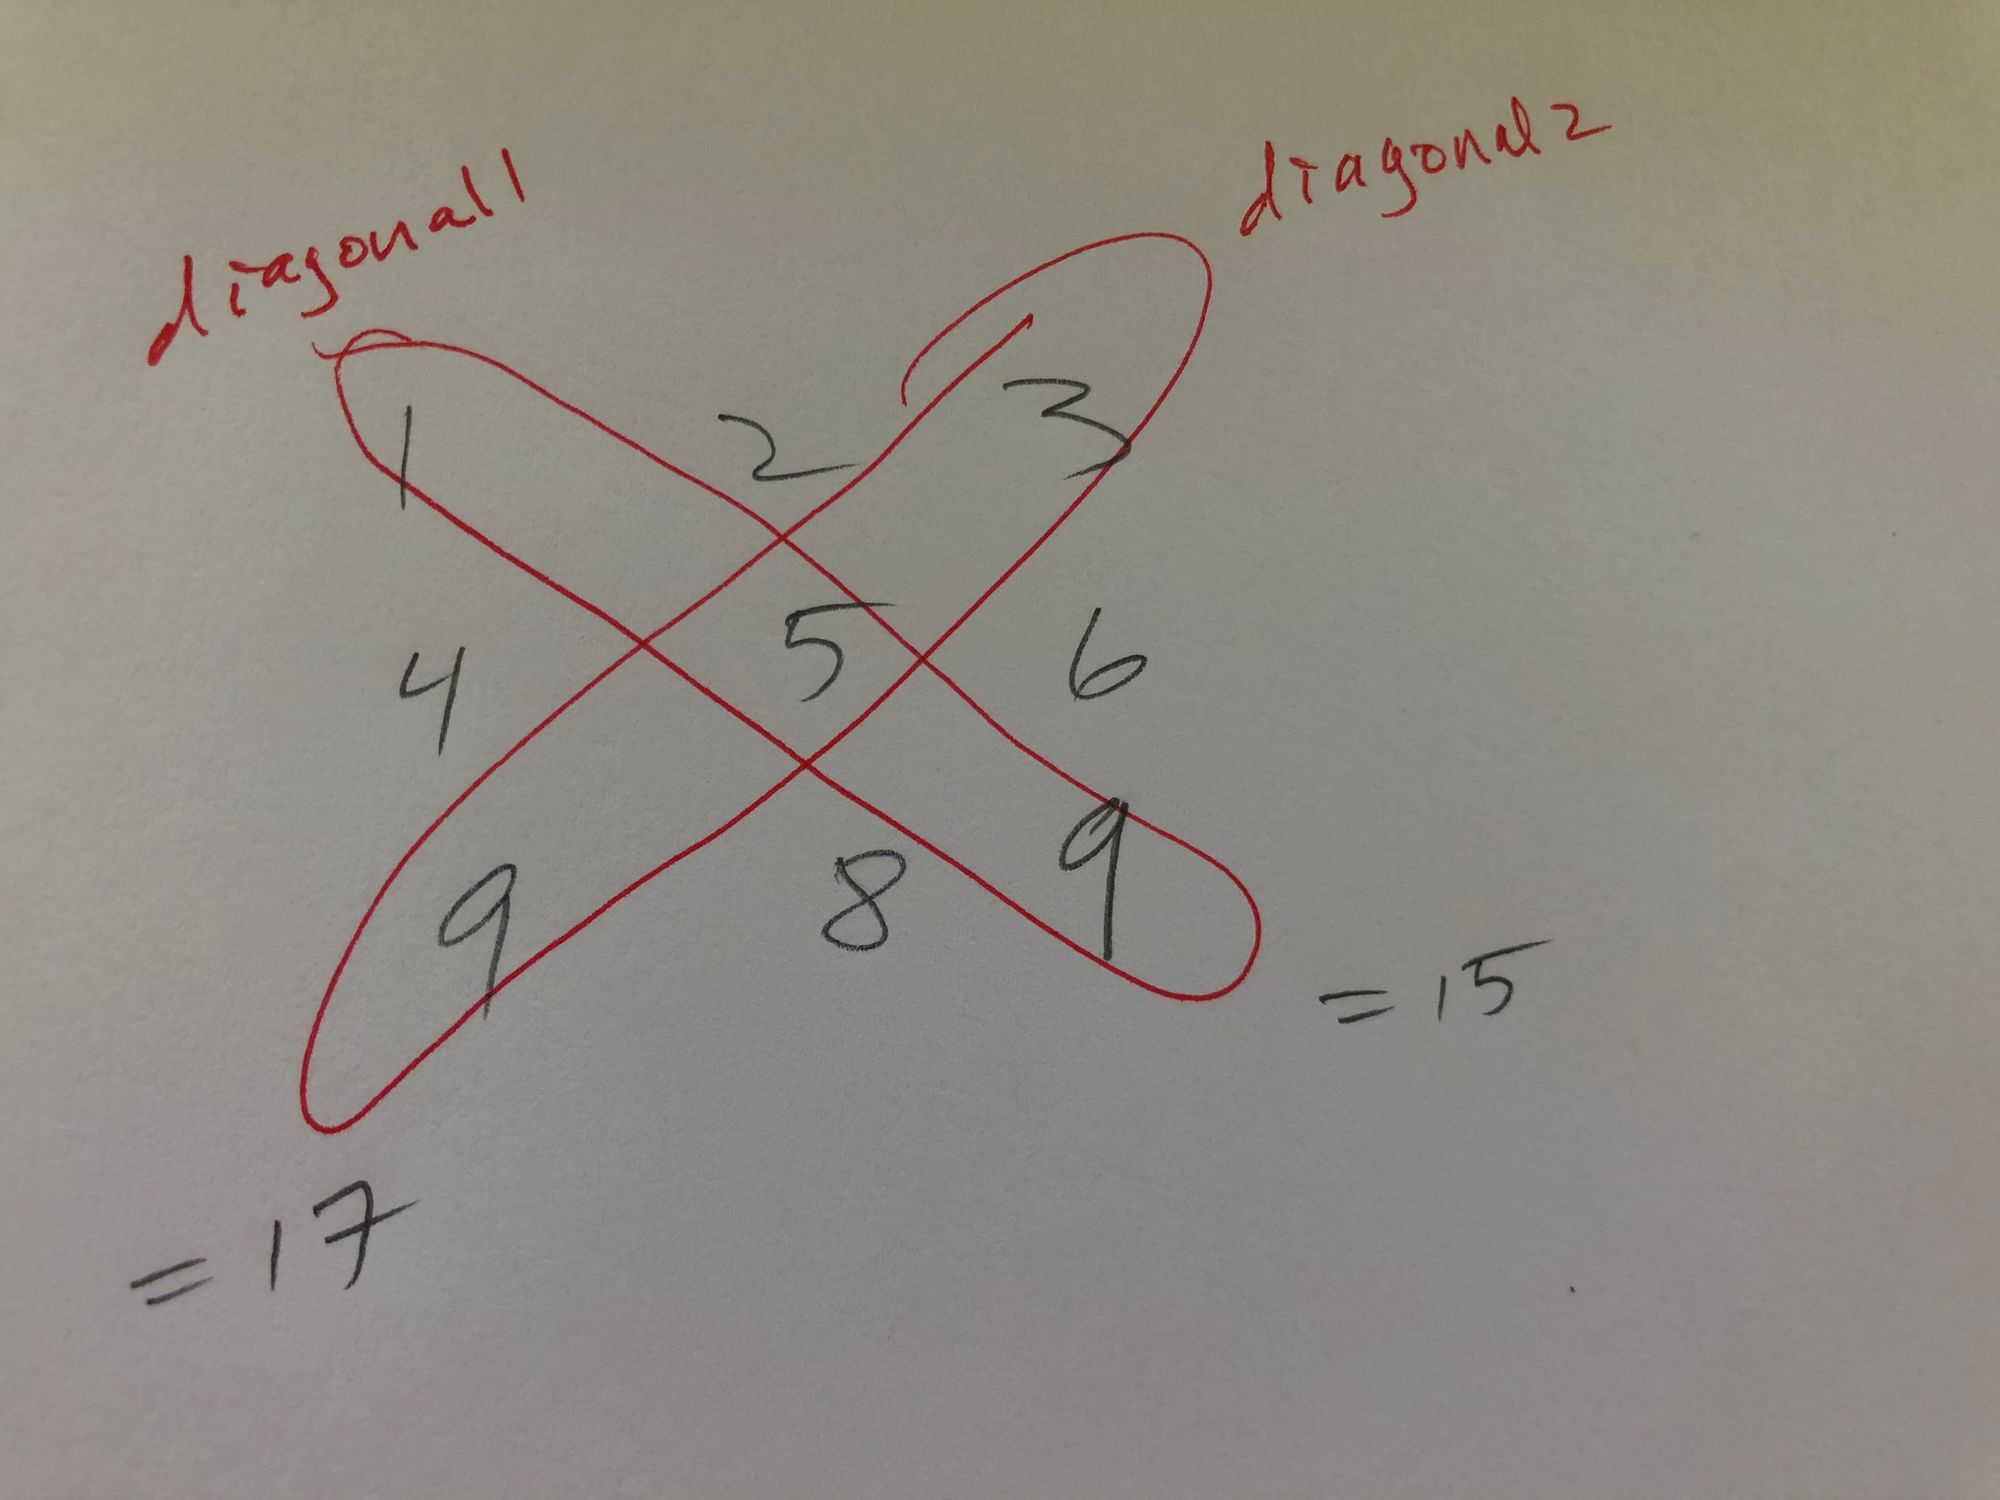 diagonal1
diagonal2
1 2 3
4 5 6
9 8 9
= 15
= 17